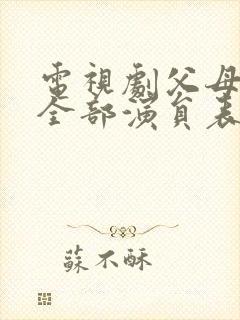 電視劇父母
全部演員表
蘇不酥